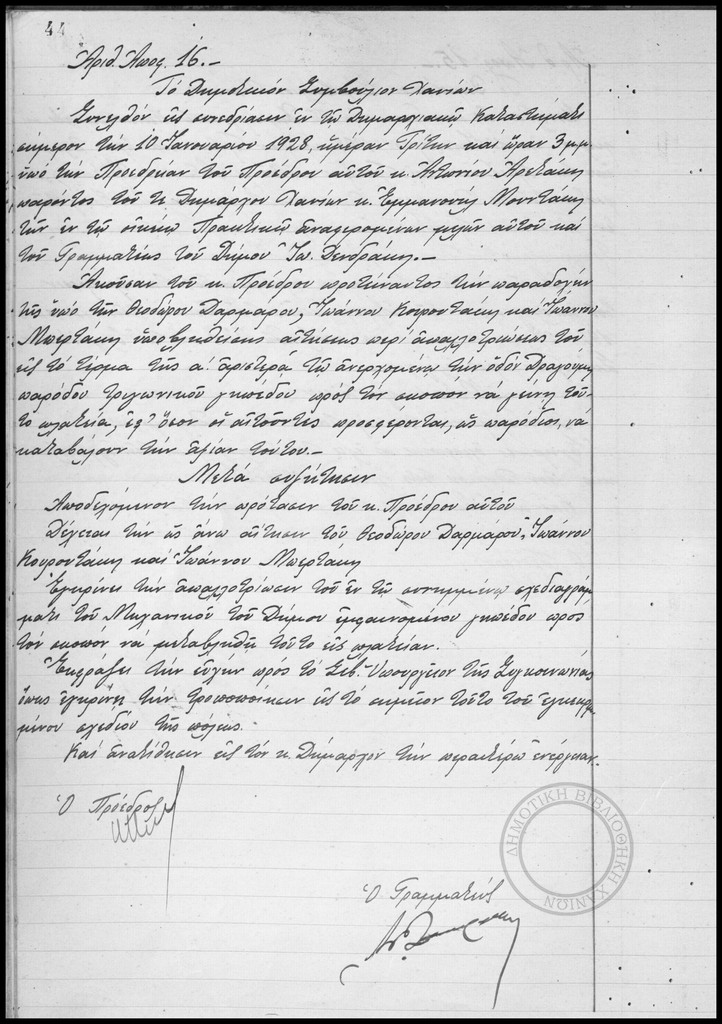 44
Ἀριθ. Ἀποφ. 16.-
Τό Δημοτικόν Συμβούλιον Χανίων
Συνελθόν εἰς συνεδρίασιν ἐν τῷ Δημαρχιακῷ Καταστήματι
σήμερον τήν 10 Ἰανουαρίου 1928, ἡμέραν Τρίτην καί ὥραν 3 μ.μ.
ὑπό τήν Προεδρείαν τοῦ Προέδρου αὐτοῦ κ. Ἀντωνίου Ἀρετάκη
παρόντος τοῦ κ. Δημάρχου Χανίων κ. Ἐμμανουήλ Μουντάκη
τῶν ἐν τῷ οἰκείῳ Πρακτικῷ ἀναφερομένων μελῶν αὐτοῦ καί
τοῦ Γραμματέως τοῦ Δήμου Ἰω. Δενδράκη.-
Ἀκοῦσαν τοῦ κ. Προέδρου προτείναντος τήν παραδοχήν
τῆς ὑπό τῶν Θεοδώρου Δαρμάρου, Ἰωάννου Κουρουτάκη καί Ἰωάννου
Μπερτάκη ὑποβληθείσης αἰτήσεως περί ἀπαλλοτριώσεως τοῦ
εἰς τό τέρμα τῆς α. ἀριστερᾷ τῷ ἀνερχομένῳ τήν ὁδόν Δραγούμη
παρόδου τριγωνικοῦ γηπέδου πρός τόν σκοπόν νά γείνῃ τοῦ-
το πλατεῖα, ἐφ' ὅσον οἱ αἰτοῦντες προσφέρονται, ὡς παρόδιοι, νά
καταβάλουν τήν ἀξίαν τούτου.-
Μετά συζήτησιν
Ἀποδεχόμενον τήν πρότασιν τοῦ κ. Προέδρου αὐτοῦ
Δέχεται τήν ὡς ἄνω αἴτησιν τοῦ Θεοδώρου Δαρμάρου, Ἰωάννου
Κουρουτάκη καί Ἰωάννου Μπερτάκη
Ἐγκρίνει τήν ἀπαλλοτρίωσιν τοῦ ἐν τῷ συνημμένῳ σχεδιαγράμ-
ματι τοῦ Μηχανικοῦ τοῦ Δήμου ἐμφαινομένου γηπέδου πρός
τόν σκοπόν νά μεταβληθῇ τοῦτο εἰς πλατεῖαν.
Ἐκφράζει τήν εὐχήν πρός τό Σεβ. Ὑπουργεῖον τῆς Συγκοινωνίας
ὅπως ἐγκρίνῃ τήν τροποποίησιν εἰς τό σημεῖον τοῦτο τοῦ ἐγκεκρι-
μένου σχεδίου τῆς πόλεως.
Καί ἀνατίθησιν εἰς τόν κ. Δήμαρχον τήν περαιτέρω ἐνέργειαν.
Ὁ Πρόεδρος
Ὁ Γραμματεύς
ΔΗΜΟΤΙΚΗ ΒΙΒΛΙΟΘΗΚΗ ΧΑΝΙΩΝ